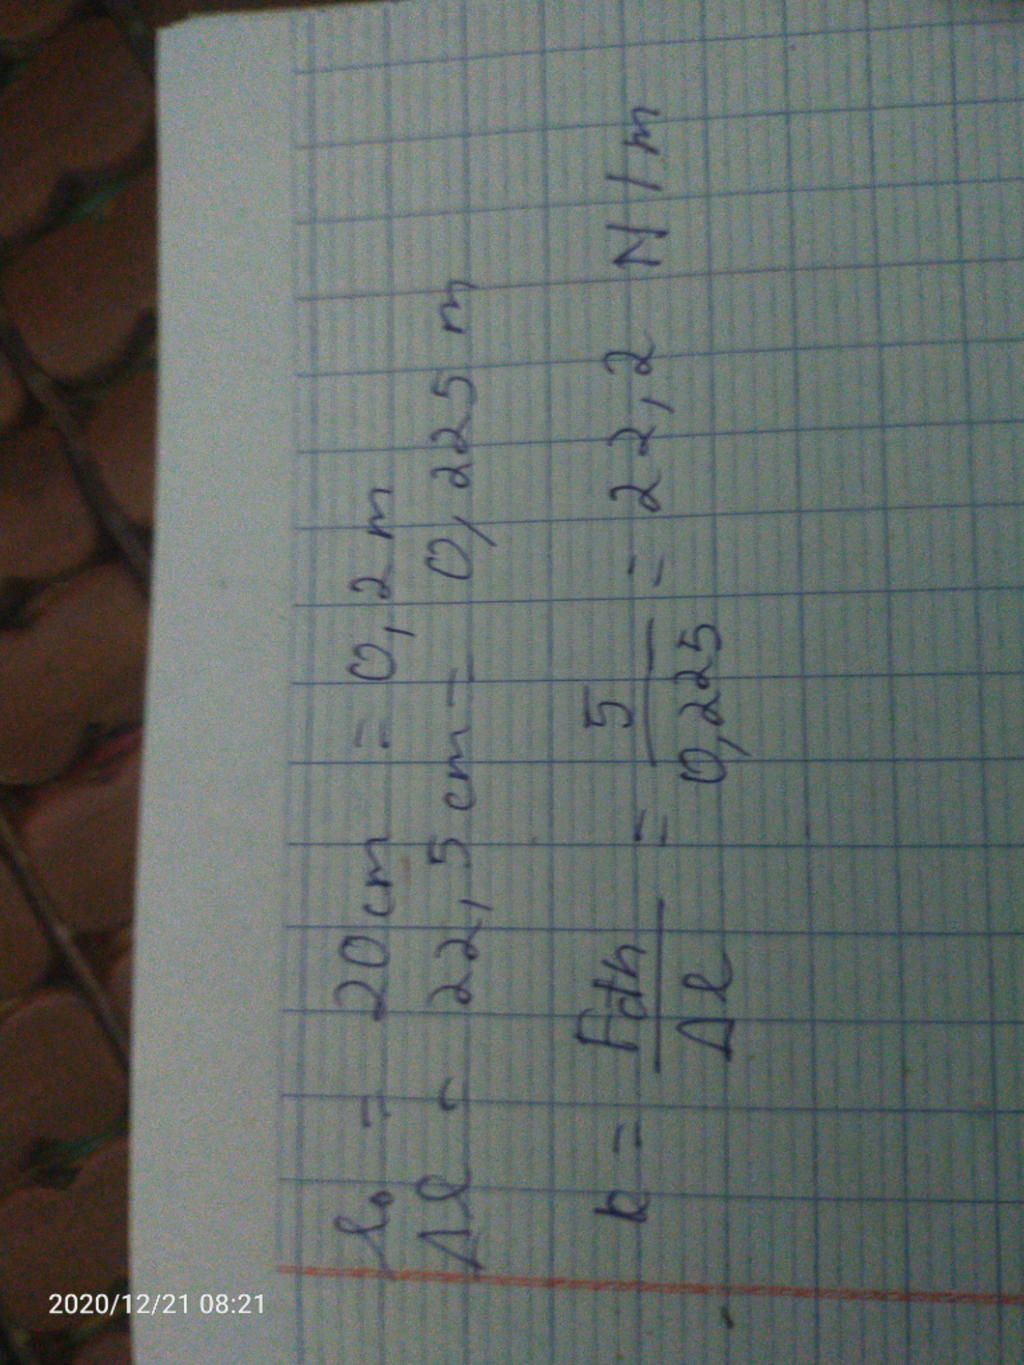 l₀ = 20cm = 0,2m
Δl = 22,5cm = 0,225 m
k = Fđh/Δl = 5/0,225 = 22,2 N/m
2020/12/21 08:21